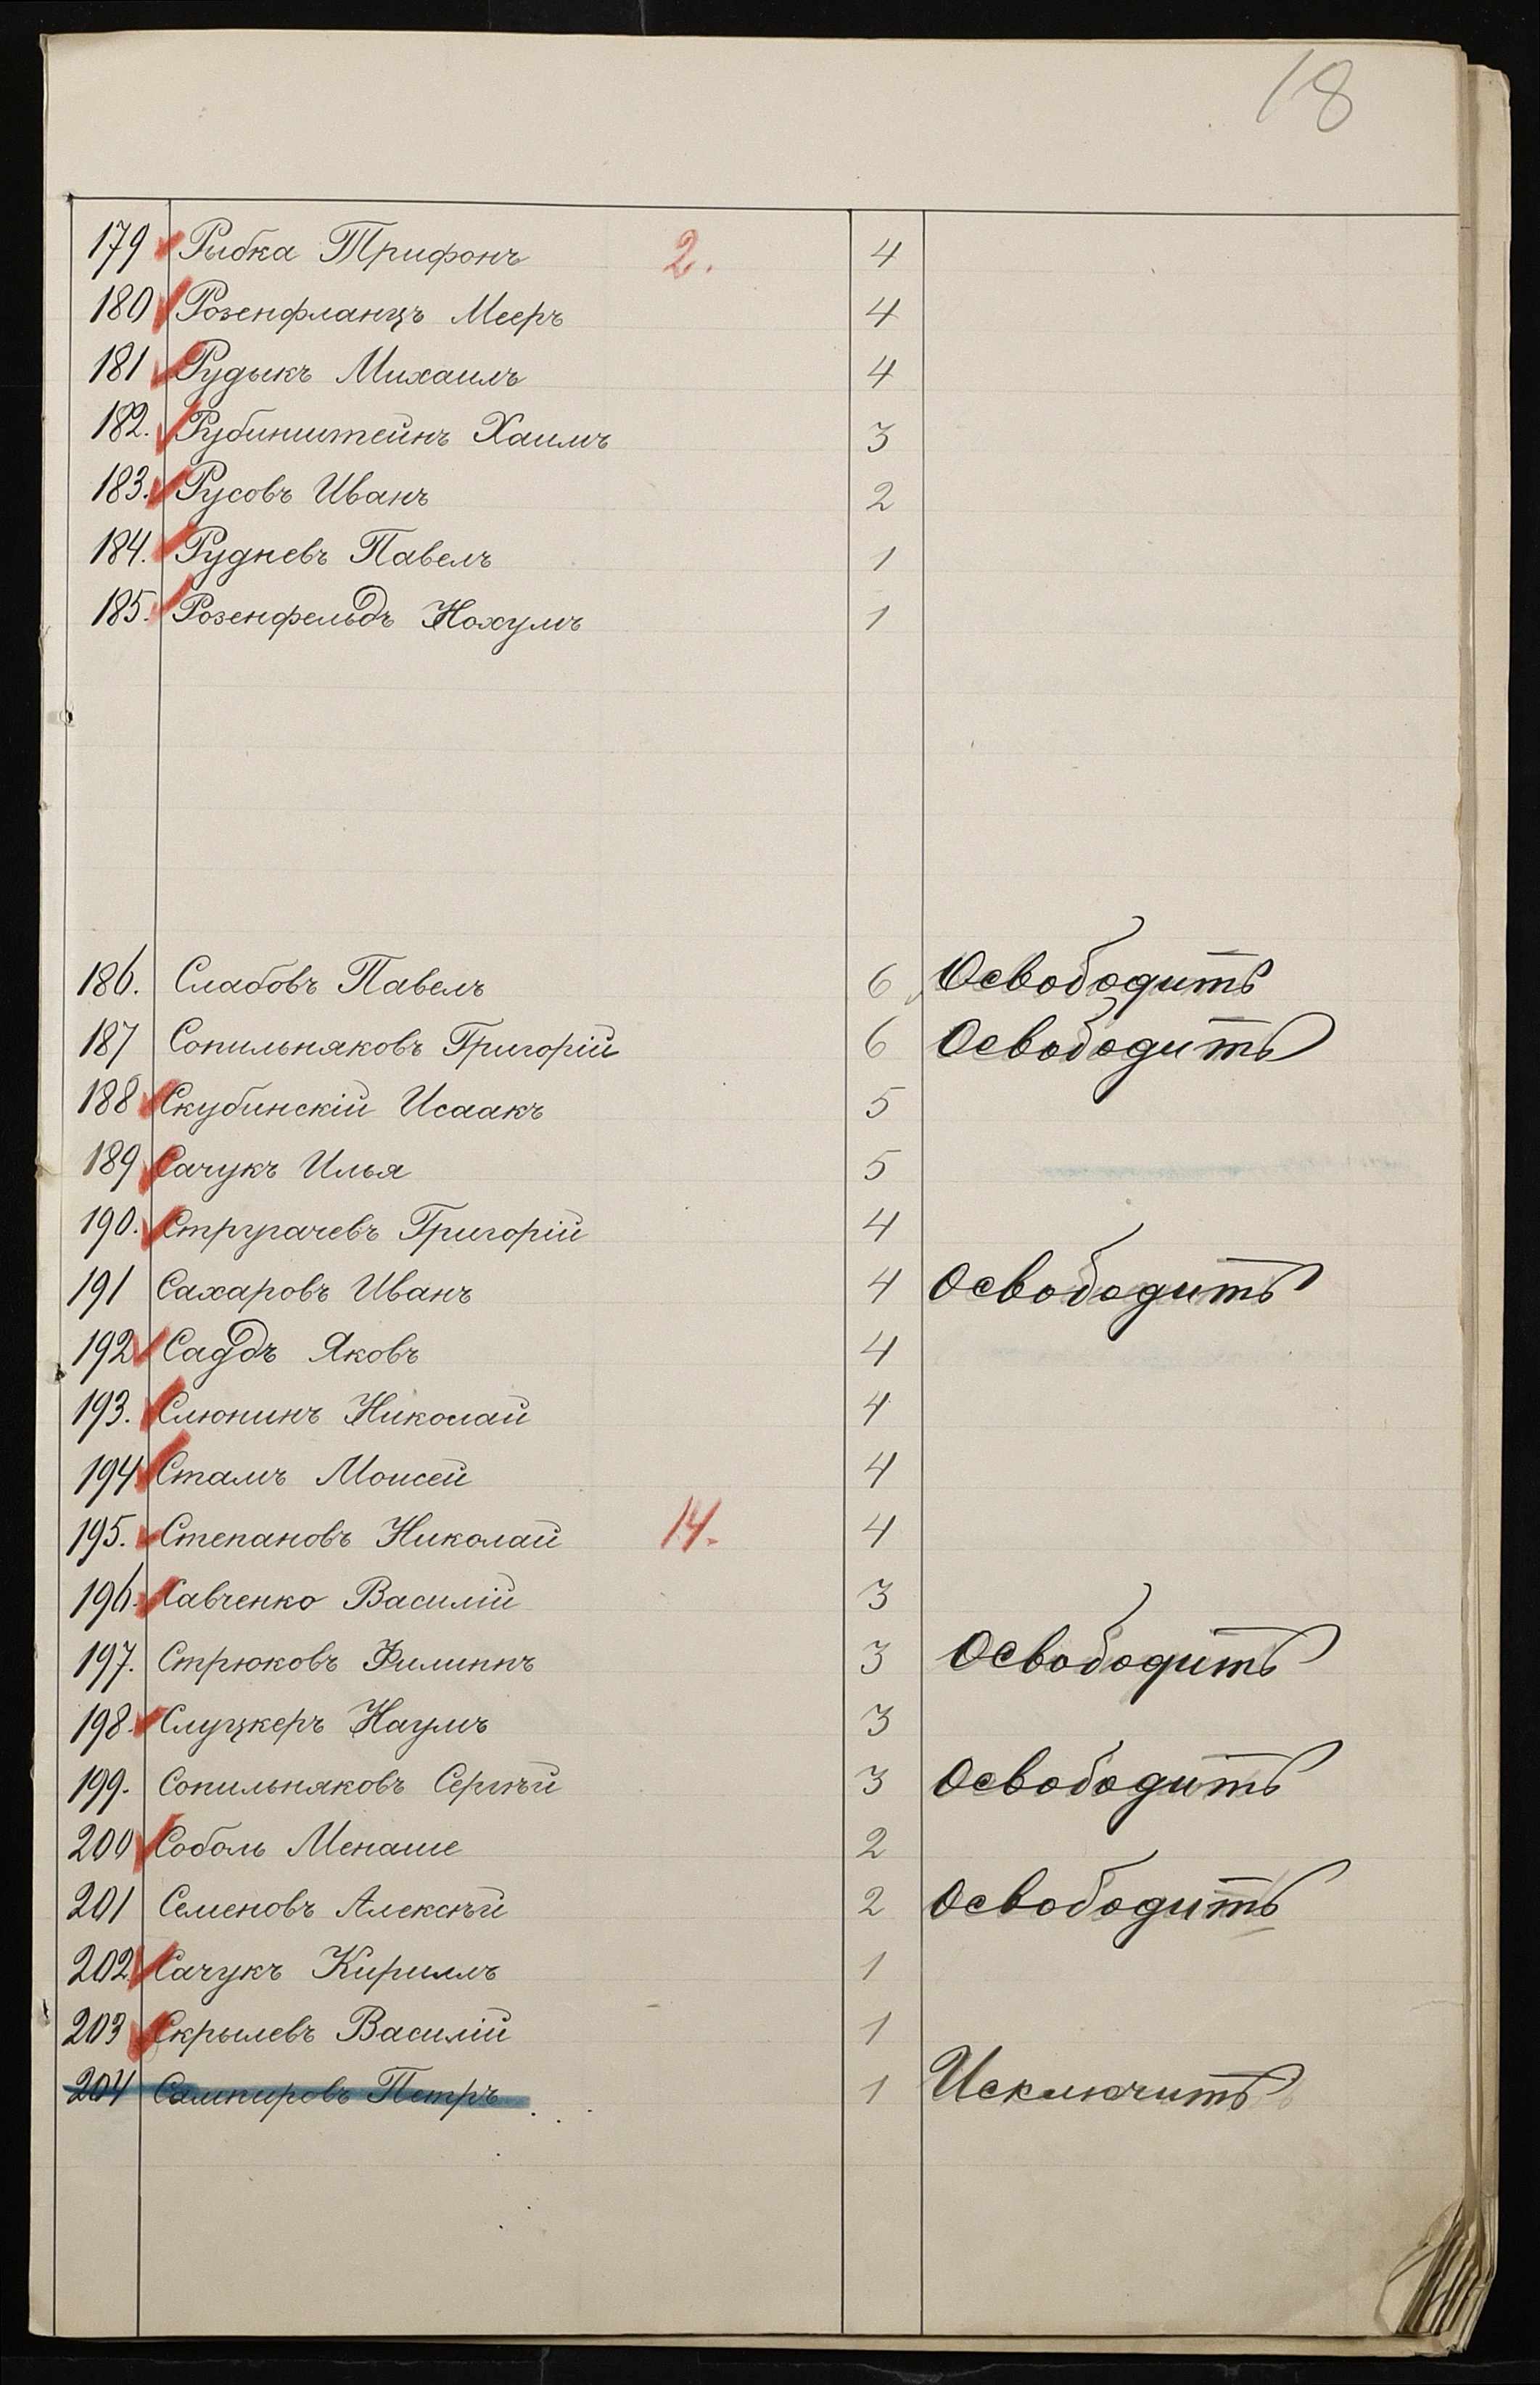 18
179 Рыбка Трифонъ 2. 4
180 Розенфланцъ Мееръ 4
181 Рудыкъ Михаилъ 4
182. Рубинштейнъ Хаимъ 3
183. Русовъ Иванъ 2
184. Рудневъ Павелъ 1
185. Розенфельдъ Нохумъ 1
186. Слабовъ Павелъ 6 Освободить
187 Сопильняковъ Григорій 6 Освободить
188 Скубинскій Исаакъ 5
189 Сачукъ Илья 5
190. Стругачевъ Григорій 4
191 Сахаровъ Иванъ 4 Освободить
192 Саддъ Яковъ 4
193. Слюнинъ Николай 4
194 Сталь Моисей 4
195. Степановъ Николай 14. 4
196. Савченко Василій 3
197. Стрюковъ Филиппъ 3 Освободить
198. Слуцкеръ Наумъ 3
199. Сопильняковъ Сергѣй 3 Освободить
200 Соболь Менаше 2
201 Семеновъ Алексѣй 2 Освободить
202. Сачукъ Кириллъ 1
203 Скрылевъ Василій 1
204 Сампировъ Петръ 1 Исключить